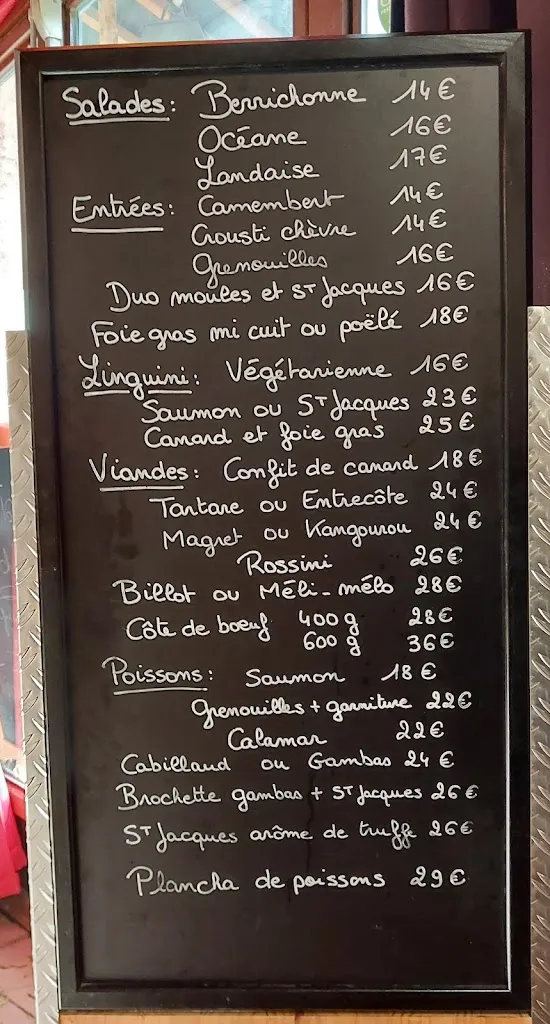 Salades: Berrichonne 14€
Océane 16€
Landaise 17€
Entrées: Camembert 14€
Crousti chèvre 14€
Grenouilles 16€
Duo moules et ST Jacques 16€
Foie gras mi cuit ou poëlé 18€
Linguini: Végétarienne 16€
Saumon ou ST Jacques 23€
Canard et foie gras 25€
Viandes: Confit de canard 18€
Tartare ou Entrecôte 24€
Magret ou Kangourou 24€
Rossini 26€
Billot ou Méli-mélo 28€
Côte de boeuf 400g 28€
600g 36€
Poissons: Saumon 18€
Grenouilles + garniture 22€
Calamar 22€
Cabillaud ou Gambas 24€
Brochette gambas + ST Jacques 26€
ST Jacques arôme de truffe 26€
Plancha de poissons 29€